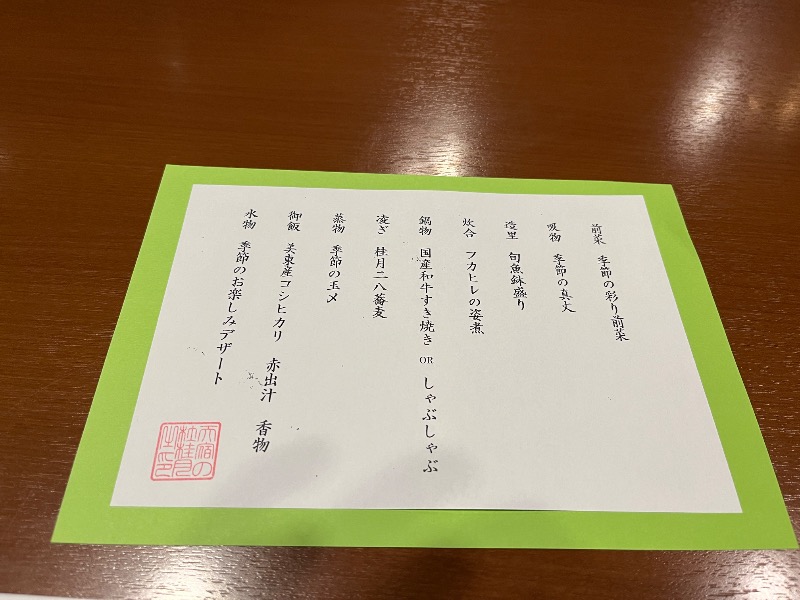 前菜 季節の彩り前菜
吸物 季節の真丈
造里 旬魚鉢盛り
炊合 フカヒレの姿煮
鍋物 国産和牛すき焼き OR しゃぶしゃぶ
凌ぎ 桂月二八蕎麦
蒸物 季節の玉〆
御飯 美東産コシヒカリ 赤出汁 香物
水物 季節のお楽しみデザート